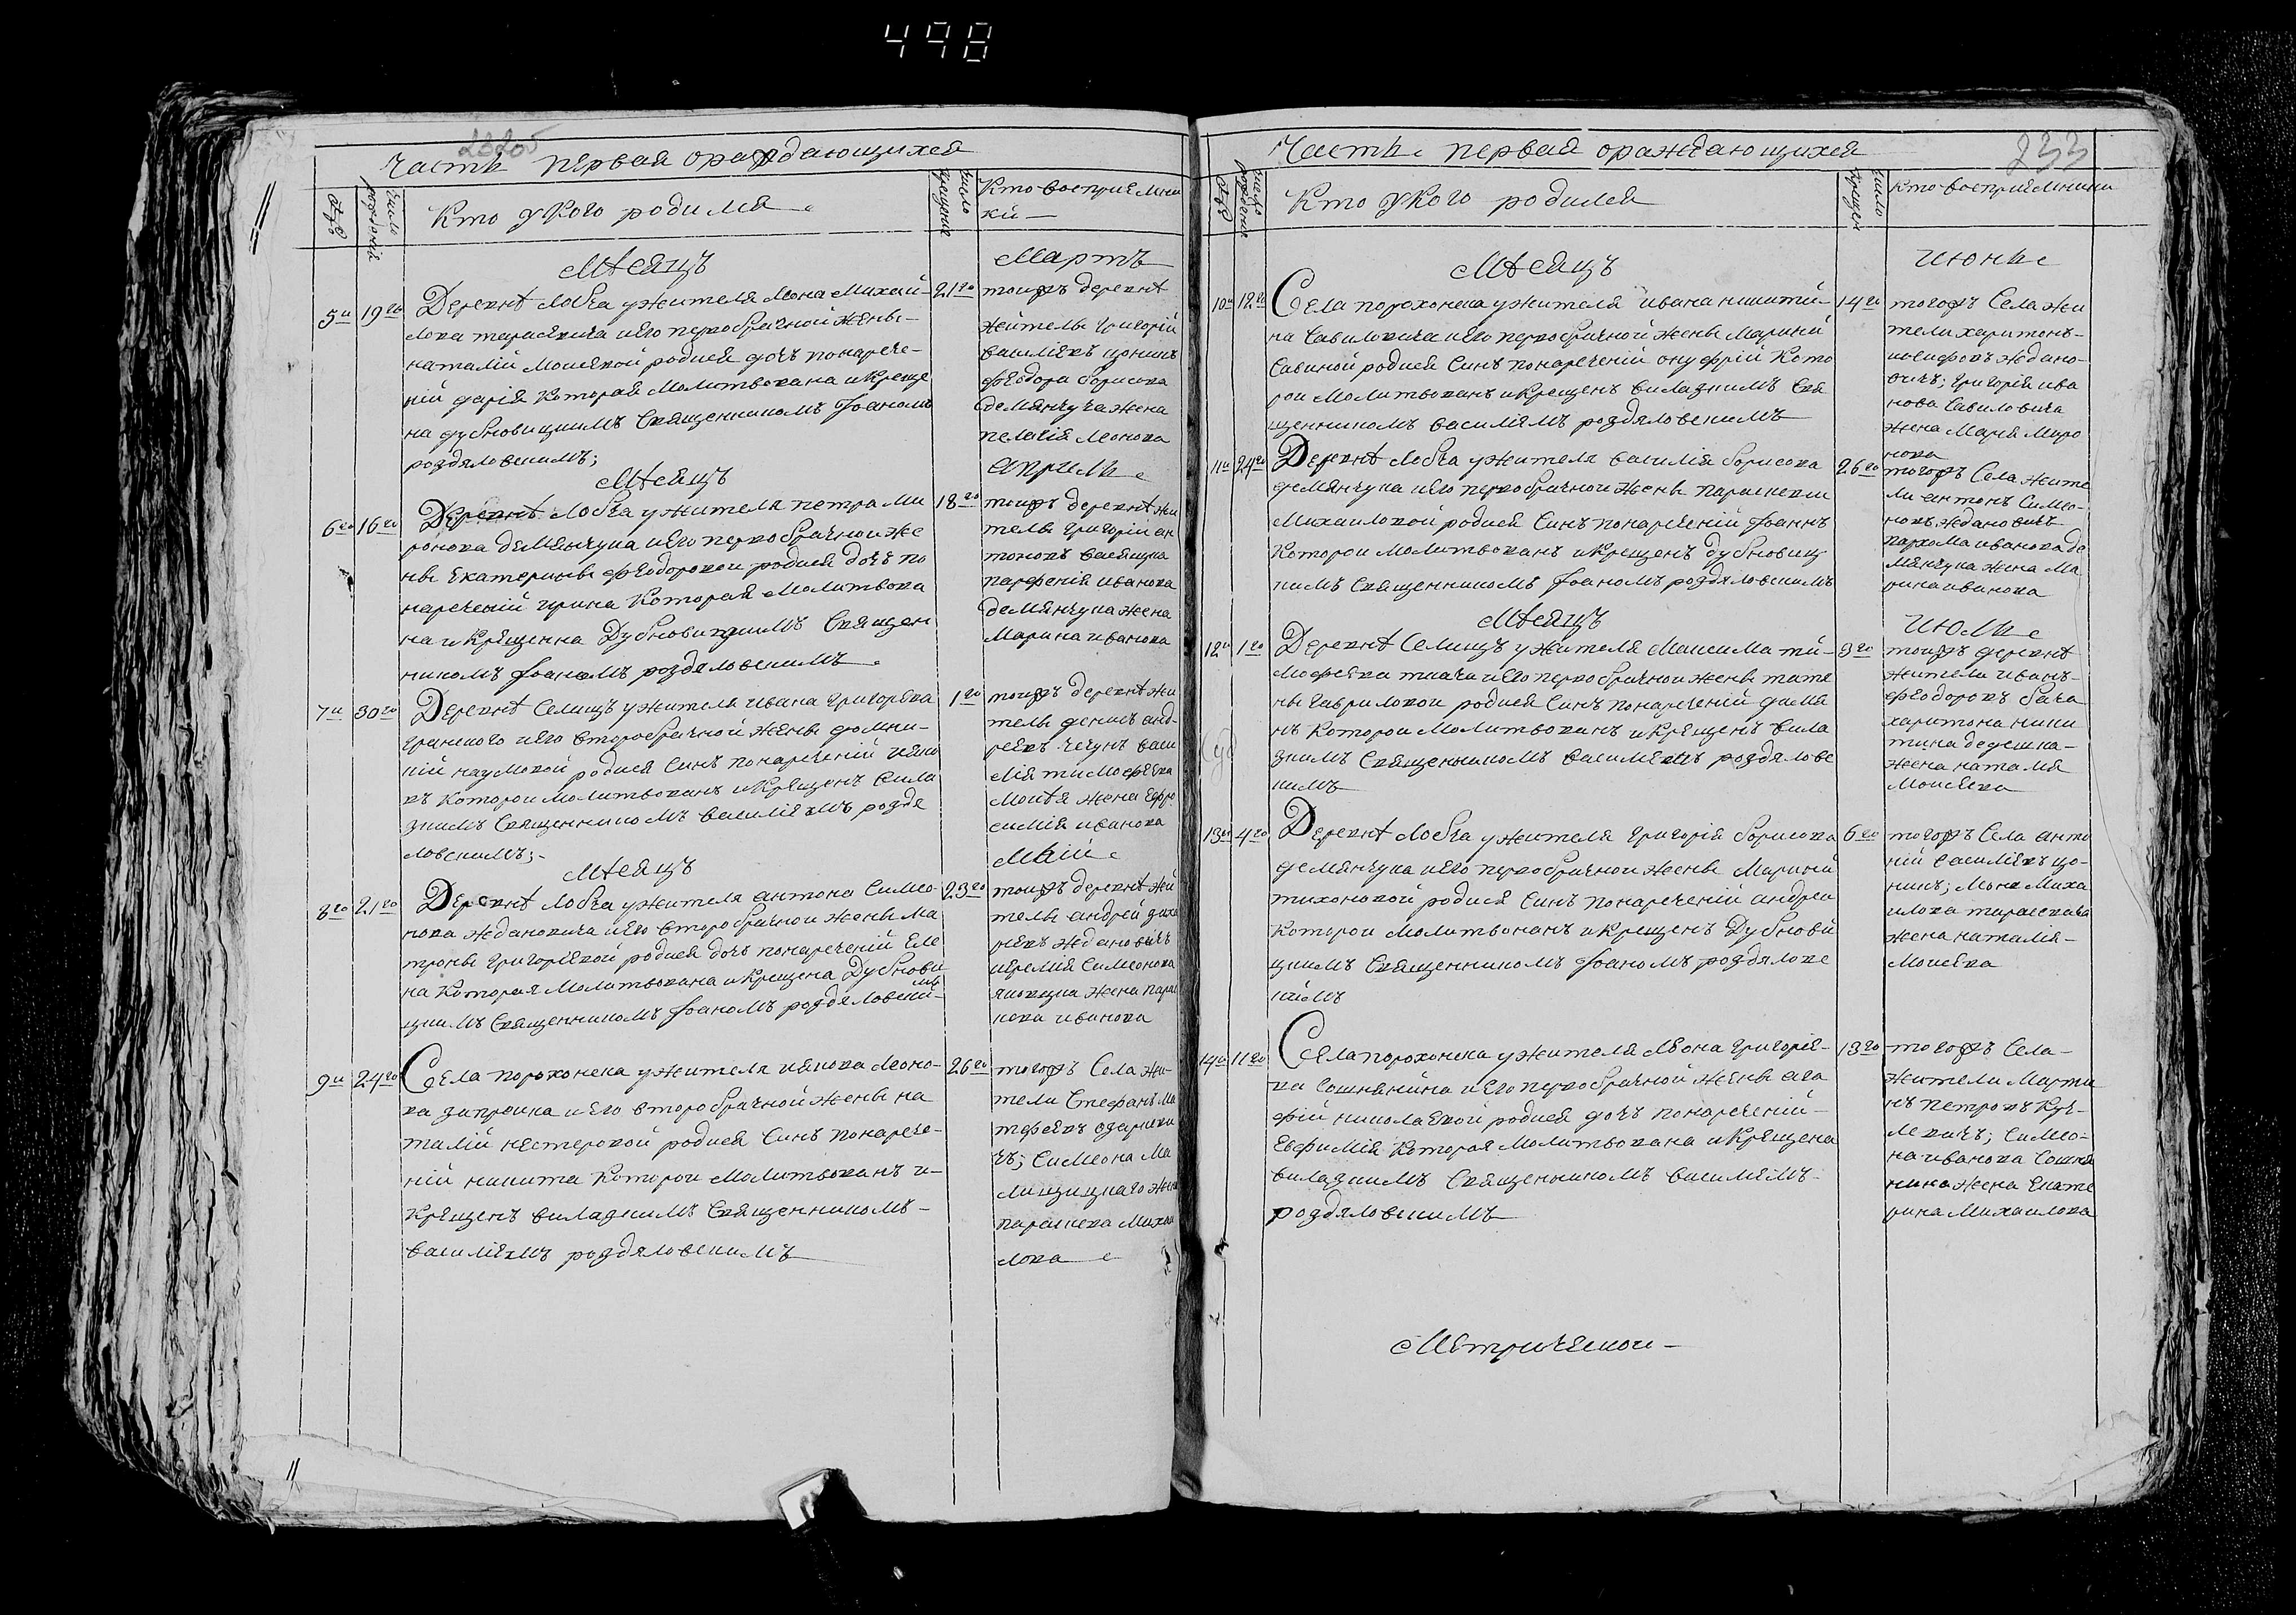 498
Часть первая ораждающихся
Число рождений
Кто у кого родился
Число крещения
Кто восприемни
ки
Месяцъ
Мартъ
5й 19го
Деревнѣ Лобча у жителя Леона Михай-
лова тарасевича и его первобрачной жены
наталій Моисѣвой родися дочъ понарече-
ній дарія Которая Молитвована и Креще
на дубновицкимъ Священникомъ Іоаномъ
роздяловскимъ;
21го
тоижъ деревнѣ
жители григорій
василіевъ цонинъ
феодора борисова
демянчука жена
пелагія леонова
Месяцъ
Апрель
6го 16го
Деревнѣ Лобча у жителя петра Ми
ронова демянчука и его первобрачной же
ны Екатерины феодоровой родися дочъ по
нареченій ирина Которая Молитвова
на и Крещенна Дубновицкимъ Священ
никомъ Іоаномъ роздяловскимъ
18го
тоижъ деревнѣ жи
тель григорій ан
тоновъ
парфенія иванова
демянчука жена
Марина иванова
7й 30го
Деревнѣ Селищъ у жителя ивана григорѣва
гринского и его второбрачной жены домни-
кій наумовой родися Синъ понареченій иако
въ Которои Молитвованъ и Крещенъ вила
зкимъ Священникомъ василіемъ роздя
ловскимъ;
1го
тоижъ деревнѣ жи
тель денисъ анд-
реевъ чечунъ васи
лія тимофеева
жена Ефро
синія иванова
Месяцъ
Май
8го 21го
Деревнѣ Лобча у жителя антона Симео-
нова ждановича и его второбрачной жены Ма
троны григорѣвой родися дочъ понареченій Еле
на Которая Молитвована и Крещена Дубнови
цкимъ Священникомъ Іоаномъ роздяловский-
мъ
23го
тоижъ деревнѣ жи
тель андрей заха
рѣвъ ждановичъ
иеремія Симеонова
жена парас
кева иванова
9й 24го
Села порохонска у жителя иякова Леоно-
ва запроика и его второбрачной жены на
талій нестеровой родися Синъ понарече-
ній никита Которои Молитвованъ и
Крещенъ вилазкимъ Священникомъ
василіемъ роздяловскимъ
26го
тогожъ Села жи-
тели Стефанъ Ма
тфеевъ одарчеви
чъ; Симеона Ма
лищицкаго жена
параскева Михаи
лова
Часть первая ораждающихся
233
Число рождений
Кто у кого родился
Число крещен
Кто восприемники
Месяцъ
июнь
10й 12го
Села порохонска у жителя ивана никити-
на Савиловича и его первобрачной жены Мариній
Савиной родися Синъ понареченій онуфрій Кото
рои Молитвованъ и Крещенъ вилазкимъ Свя
щенникомъ василіямъ роздяловскимъ
14го
тогожъ Села жи
тели харитонъ
иосифовъ ждано-
вичъ; григорія ива
нова Савиловича
жена Марія Миро
нова
11й 24го
Деревнѣ Лобча у жителя василія борисова
демянчука и его первобрачной жены параскевы
Михаиловой родися Синъ понареченій Іоаннъ
Которои Молитвованъ и Крещенъ дубновиц
кимъ Священникомъ Іоаномъ роздяловскимъ
26го
тогожъ Села жите
ли антонъ Симео-
новъ ждановичъ
пахома иванова де
мянчука жена Ма
рина иванова
Месяцъ
июль
12й 1го
Деревнѣ Селищъ у жителя Максима ти-
мофеева ткача и его первобрачной жены татя
ны гавриловой родися Синъ понареченій дамя
нъ Которои Молитвованъ и Крещенъ вила
зкимъ Священникомъ василіемъ роздяловс
кимъ
3го
тоижъ деревнѣ
жители иванъ
феодоровъ бача
харитона ники
тина дедешка
жена наталія
Моисѣва
13го 4го
Деревнѣ Лобча у жителя григорія борисова
демянчука и его первобрачной жены Мариній
тихоновой родися Синъ понареченій андреи
Которои Молитвованъ и Крещенъ Дубнови
цкимъ Священникомъ Іоаномъ роздяловс
кимъ
6го
тогожъ Села анто
ній василіевъ цо-
нинъ; Леона Миха
илова тарасевича
жена наталія
Моисѣва
14й 11го
Села порохонска у жителя Леона григорѣ-
ва Сошнянина и его первобрачной жены ага
фій николаевой родися дочъ понареченій
Евфимія Которая Молитвована и Крещена
вилазкимъ Священникомъ василіямъ
роздяловскимъ
13го
тогожъ Села
жители Марти
нъ петровъ Куч-
левичъ; Симео-
на иванова Сошня
нина жена Екате
рина Михаилова
Метрической